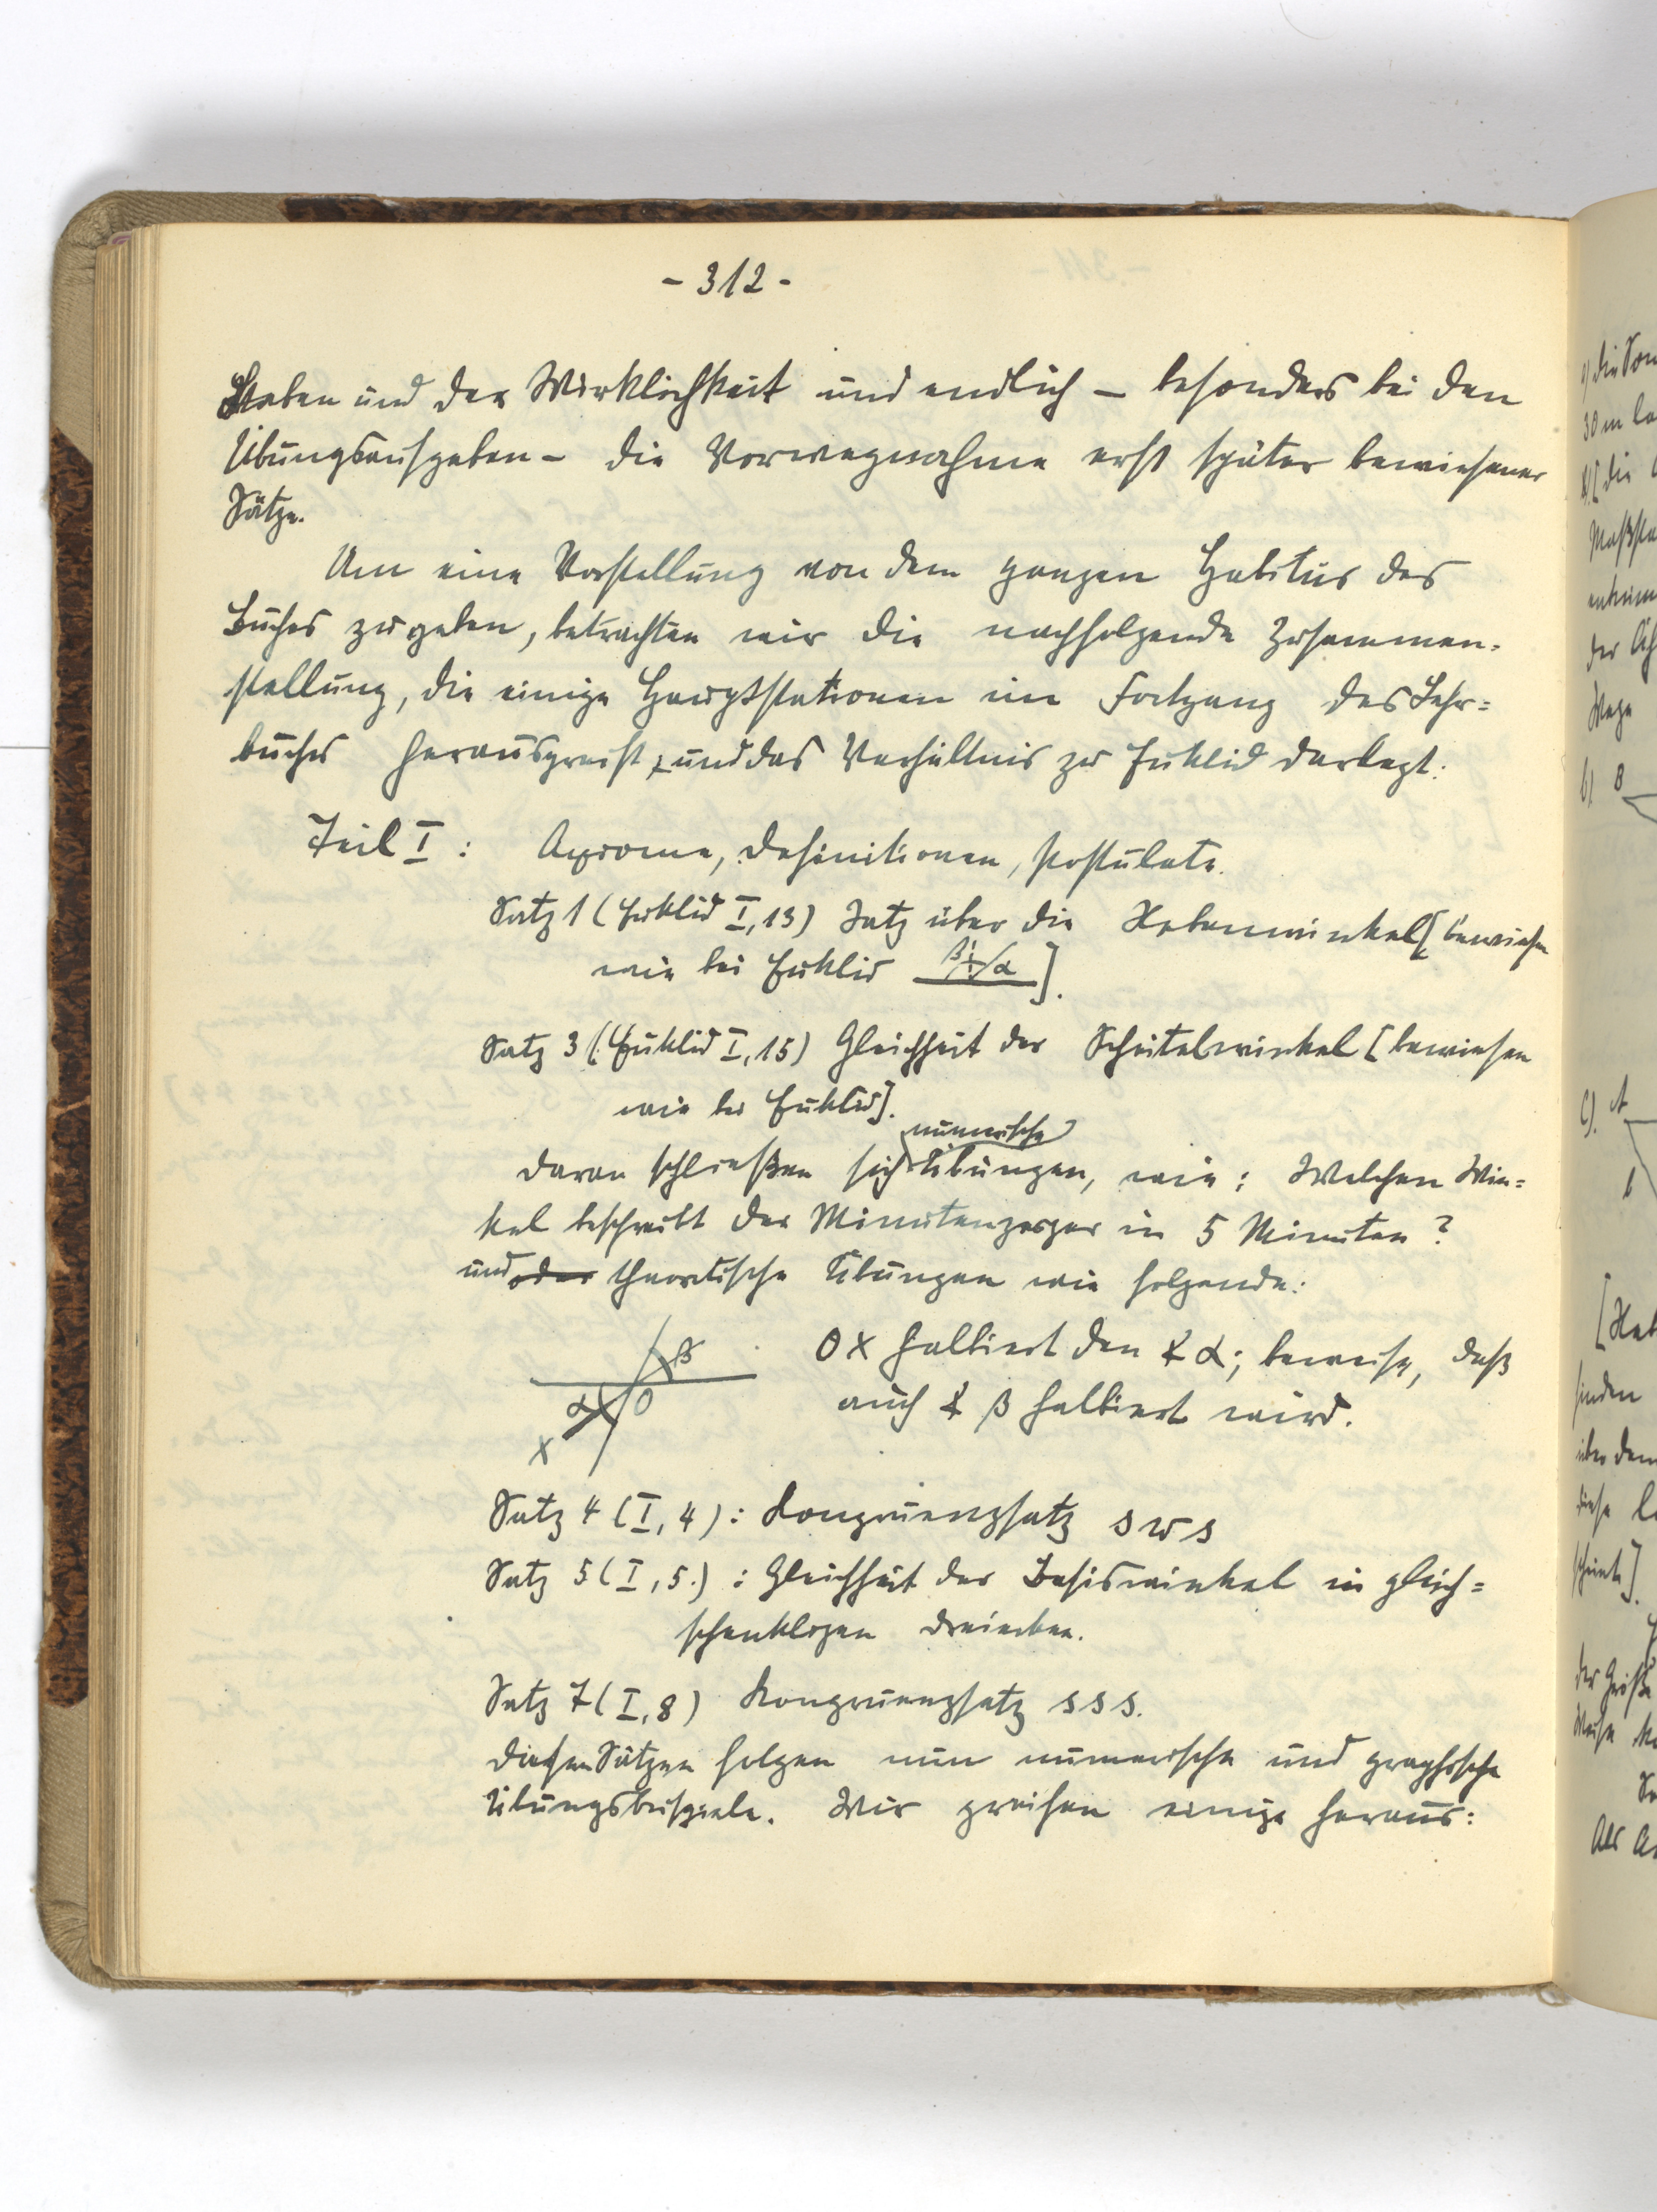 - 312 -
Leben und der Wirklichkeit und endlich – besonders bei den
Übungsaufgaben – die Vorwegnahme erst später bewiesener
Sätze.
Um eine Vorstellung von dem ganzen Habitus des
Buches zu geben, betrachten wir die nachfolgende Zusammen-
stellung, die einige Hauptstationen im Fortgang des Lehr=
buches herausgreift, und das Verhältnis zu Euklid darlegt:
Teil I : Axiome, Definitionen, Postulate.
Satz 1 (Euklid I, 13) Satz über die Nebenwinkel [bewiesen
wie bei Euklid β α ].
Satz 3 (Euklid I, 15) Gleichheit der Scheitelwinkel [bewiesen
wie bei Euklid].
numerische
Daran schließen sich Übungen, wie: Welchen Win=
kel beschreibt der Minutenzeiger in 5 Minuten?
und oder theoretische Übungen wie folgende:
β
α O
X
OX halbiert den ∢ α; beweise, daß
auch ∢ β halbiert wird.
Satz 4 (I, 4): Kongruenzsatz s w s
Satz 5 (I, 5.) : Gleichheit der Basiswinkel in gleich=
schenkligen Dreiecken.
Satz 7 (I, 8) Kongruenzsatz s s s.
Diesen Sätzen folgen nun numerische und graphische
Übungsbeispiele. Wir greifen einige heraus:
30 m
b) B
c). A
[Neb
finden
über dem
diese
scheint].
Als